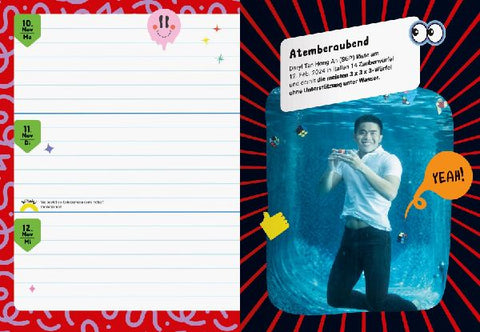 10.
Nov
Mo
11.
Nov
Di
12.
Nov
Mi
Atemberaubend
Daryl Tan Hong An (SGP) löste am
12. Feb. 2024 in Italien 14 Zauberwürfel
und damit die meisten 3 x 3 x 3-Würfel
ohne Unterstützung unter Wasser.
YEAH!